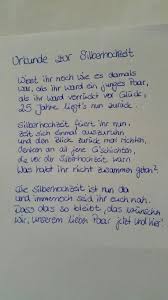 Urkunde zur Silberhochzeit
Wisst ihr noch wie es damals
war, als ihr ward ein junges Paar,
als ihr ward verrückt vor Glück,
25 Jahre liegt's nun zurück.
Silberhochzeit feiert ihr nun,
Zeit sich einmal auszuruhn
und den Blick zurück mal richten,
denken an all jene G'schichten,
die vor der Silberhochzeit warn
Was habt ihr nicht zusammen getan?
Die Silberhochzeit ist nun da
und immernoch seid ihr euch nah.
Dass das so bleibt, das wünschen
wir, unserem lieben Paar jetzt und hier!